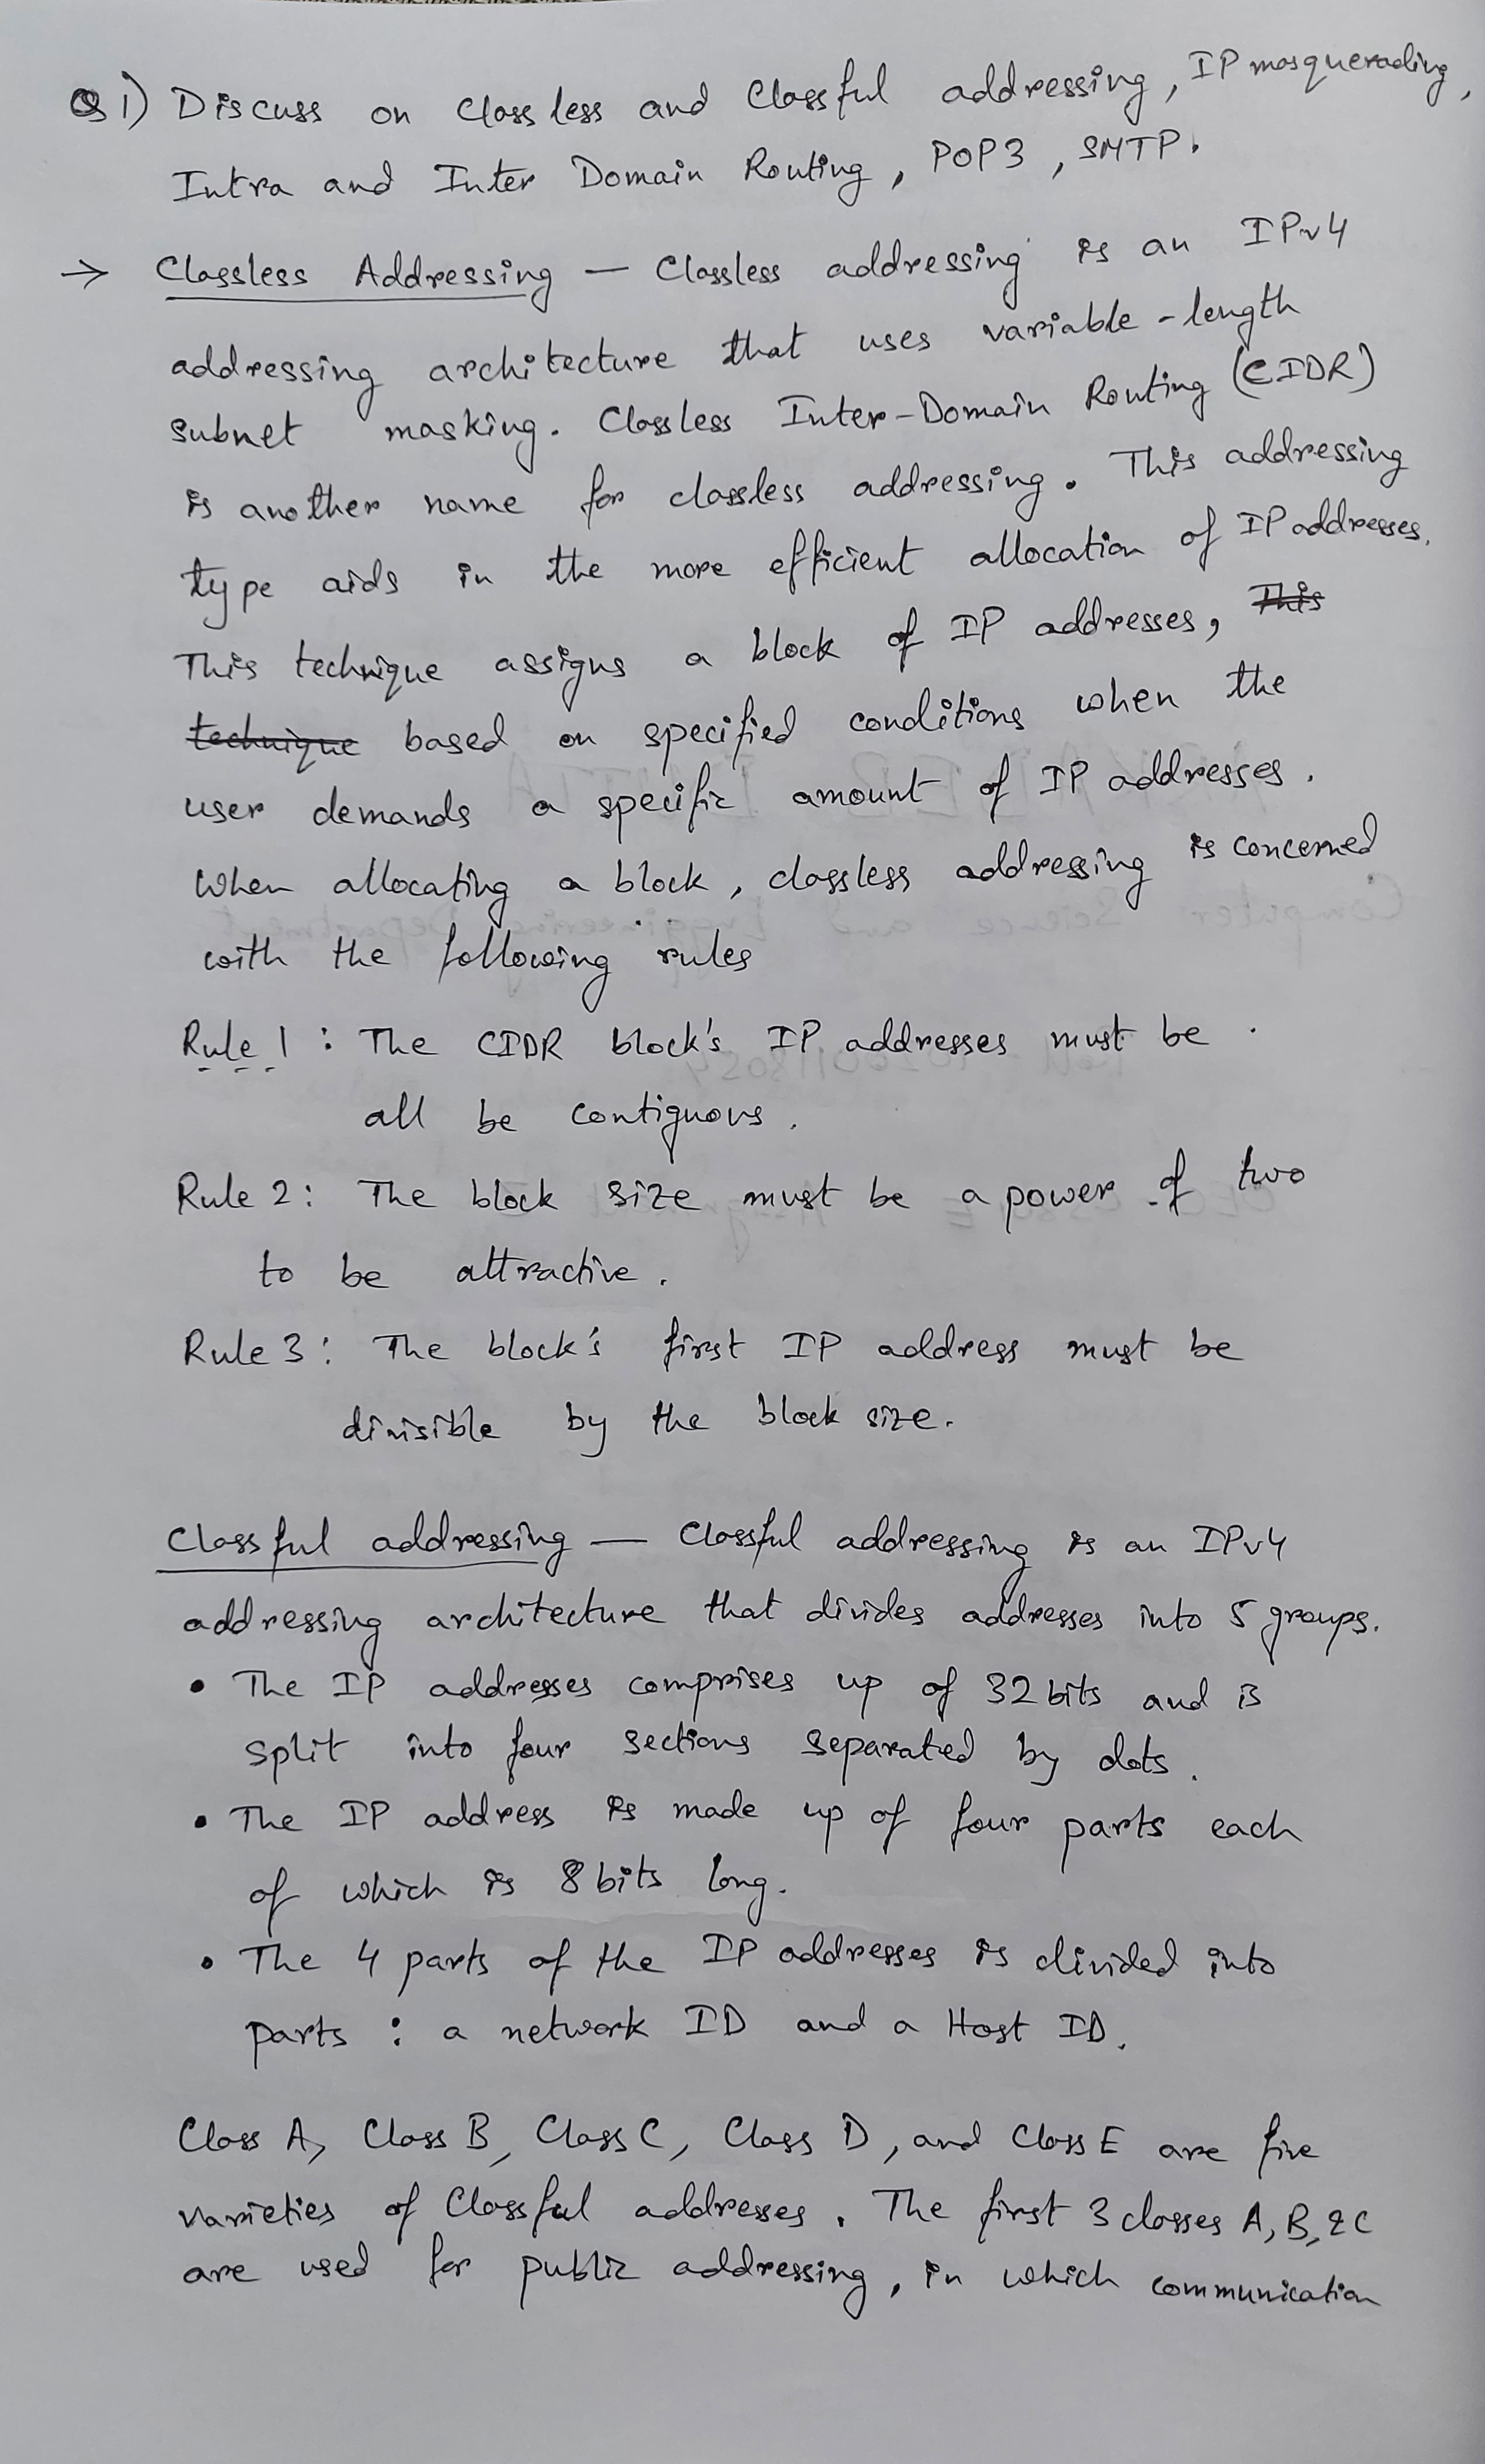 Q 1) Discuss on Classless and Classful addressing, IP masquerading,
Intra and Inter Domain Routing, POP3, SMTP.
→ Classless Addressing — Classless addressing is an IPv4
addressing architecture that uses variable-length
subnet masking. Classless Inter-Domain Routing (CIDR)
is another name for classless addressing. This addressing
type aids in the more efficient allocation of IP addresses.
This technique assigns a block of IP addresses, This
technique based on specified conditions when the
user demands a specific amount of IP addresses.
When allocating a block, classless addressing is concerned
with the following rules
Rule 1 : The CIDR block's IP addresses must be
all be contiguous.
Rule 2 : The block size must be a power of two
to be attractive.
Rule 3 : The block's first IP address must be
divisible by the block size.
Classful addressing — Classful addressing is an IPv4
addressing architecture that divides addresses into 5 groups.
• The IP addresses comprises up of 32 bits and is
split into four sections separated by dots.
• The IP address is made up of four parts each
of which is 8 bits long.
• The 4 parts of the IP addresses is divided into
parts : a network ID and a Host ID.
Class A, Class B, Class C, Class D, and Class E are five
varieties of Classful addresses. The first 3 classes A, B, & C
are used for public addressing, in which communication